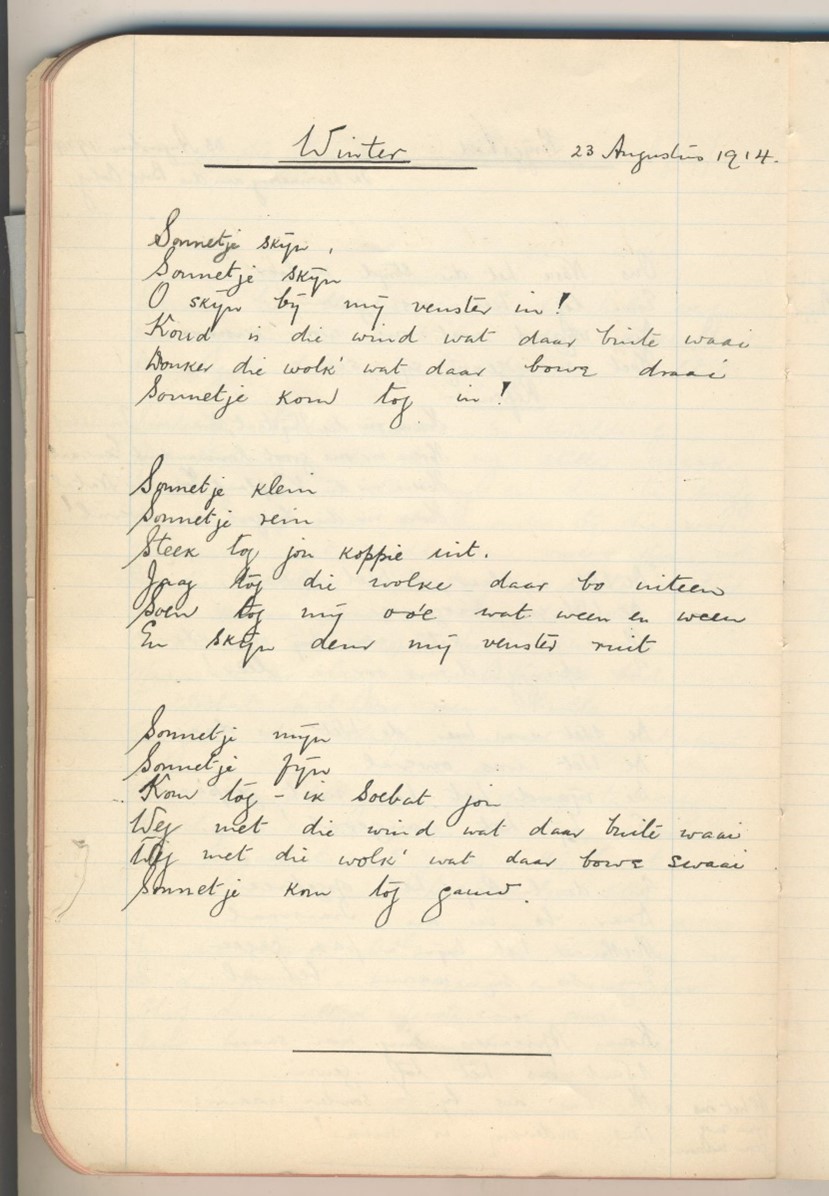 Winter
23 Augustus 1914.
Sonnetje skyn,
Sonnetje skyn
O skyn by my venster in!
Koud is die wind wat daar buite waai
Donker die wolk' wat daar bowe draai
Sonnetje kom tog in!
Sonnetje klein
Sonnetje rein
Steek tog jou koppie uit.
Jaag tog die wolke daar bo uiteen
Soen tog my ooë wat ween en ween
En skyn deur my venster ruit
Sonnetje myn
Sonnetje fyn
Kom tog – ik soebat jou
Weg met die wind wat daar buite waai
Weg met die wolk' wat daar bowe swaai
Sonnetje kom tog gauw.